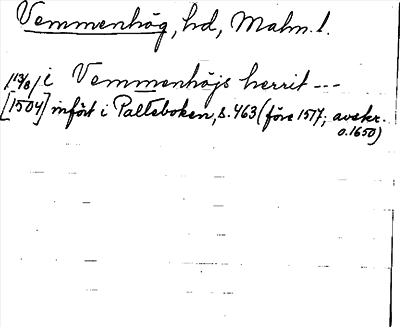 Vemmenhög, hd, Malm. l.
/13/8/ i Vemmenhöjs herrit ---
[1504] infört i Palteboken, s. 463 (före 1517; avskr.
o. 1650)